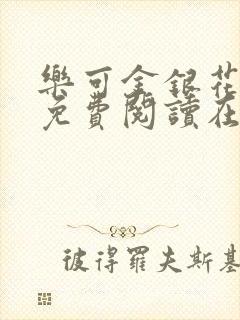 樂可金銀花
免費閱讀在
彼得羅夫斯基